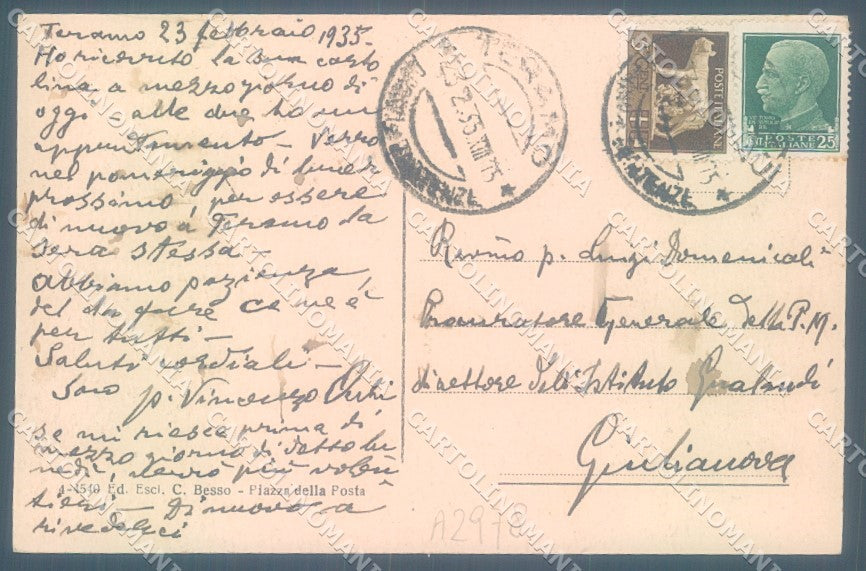 Teramo 23 febbraio 1935.
Ho ricevuto la sua carto
lina a mezzogiorno di
oggi alle due ho un
appuntamento - Verrò
nel pomeriggio di lunedì
prossimo per essere
di nuovo a Teramo la
sera stessa -
abbiamo pazienza,
del da fare ce ne è
per tutti -
Saluti cordiali -
Suo
p. Vincenzo
se mi riesce prima di
mezzo giorno di detto lu
nedì, verrò più volen
tieri - Di nuovo a
rivederci
4-1540 Ed. Escl. C. Besso - Piazza della Posta
TERAMO
23.2.35.XIII
PARTENZE
POSTE ITALIANE
POSTE
ITALIANE
25
Rev.mo p. Luigi Domenicali
Procuratore Generale della P.M.
direttore dell'Istituto Gualandi
Giulianova
A297
CARTOLINOMANIA